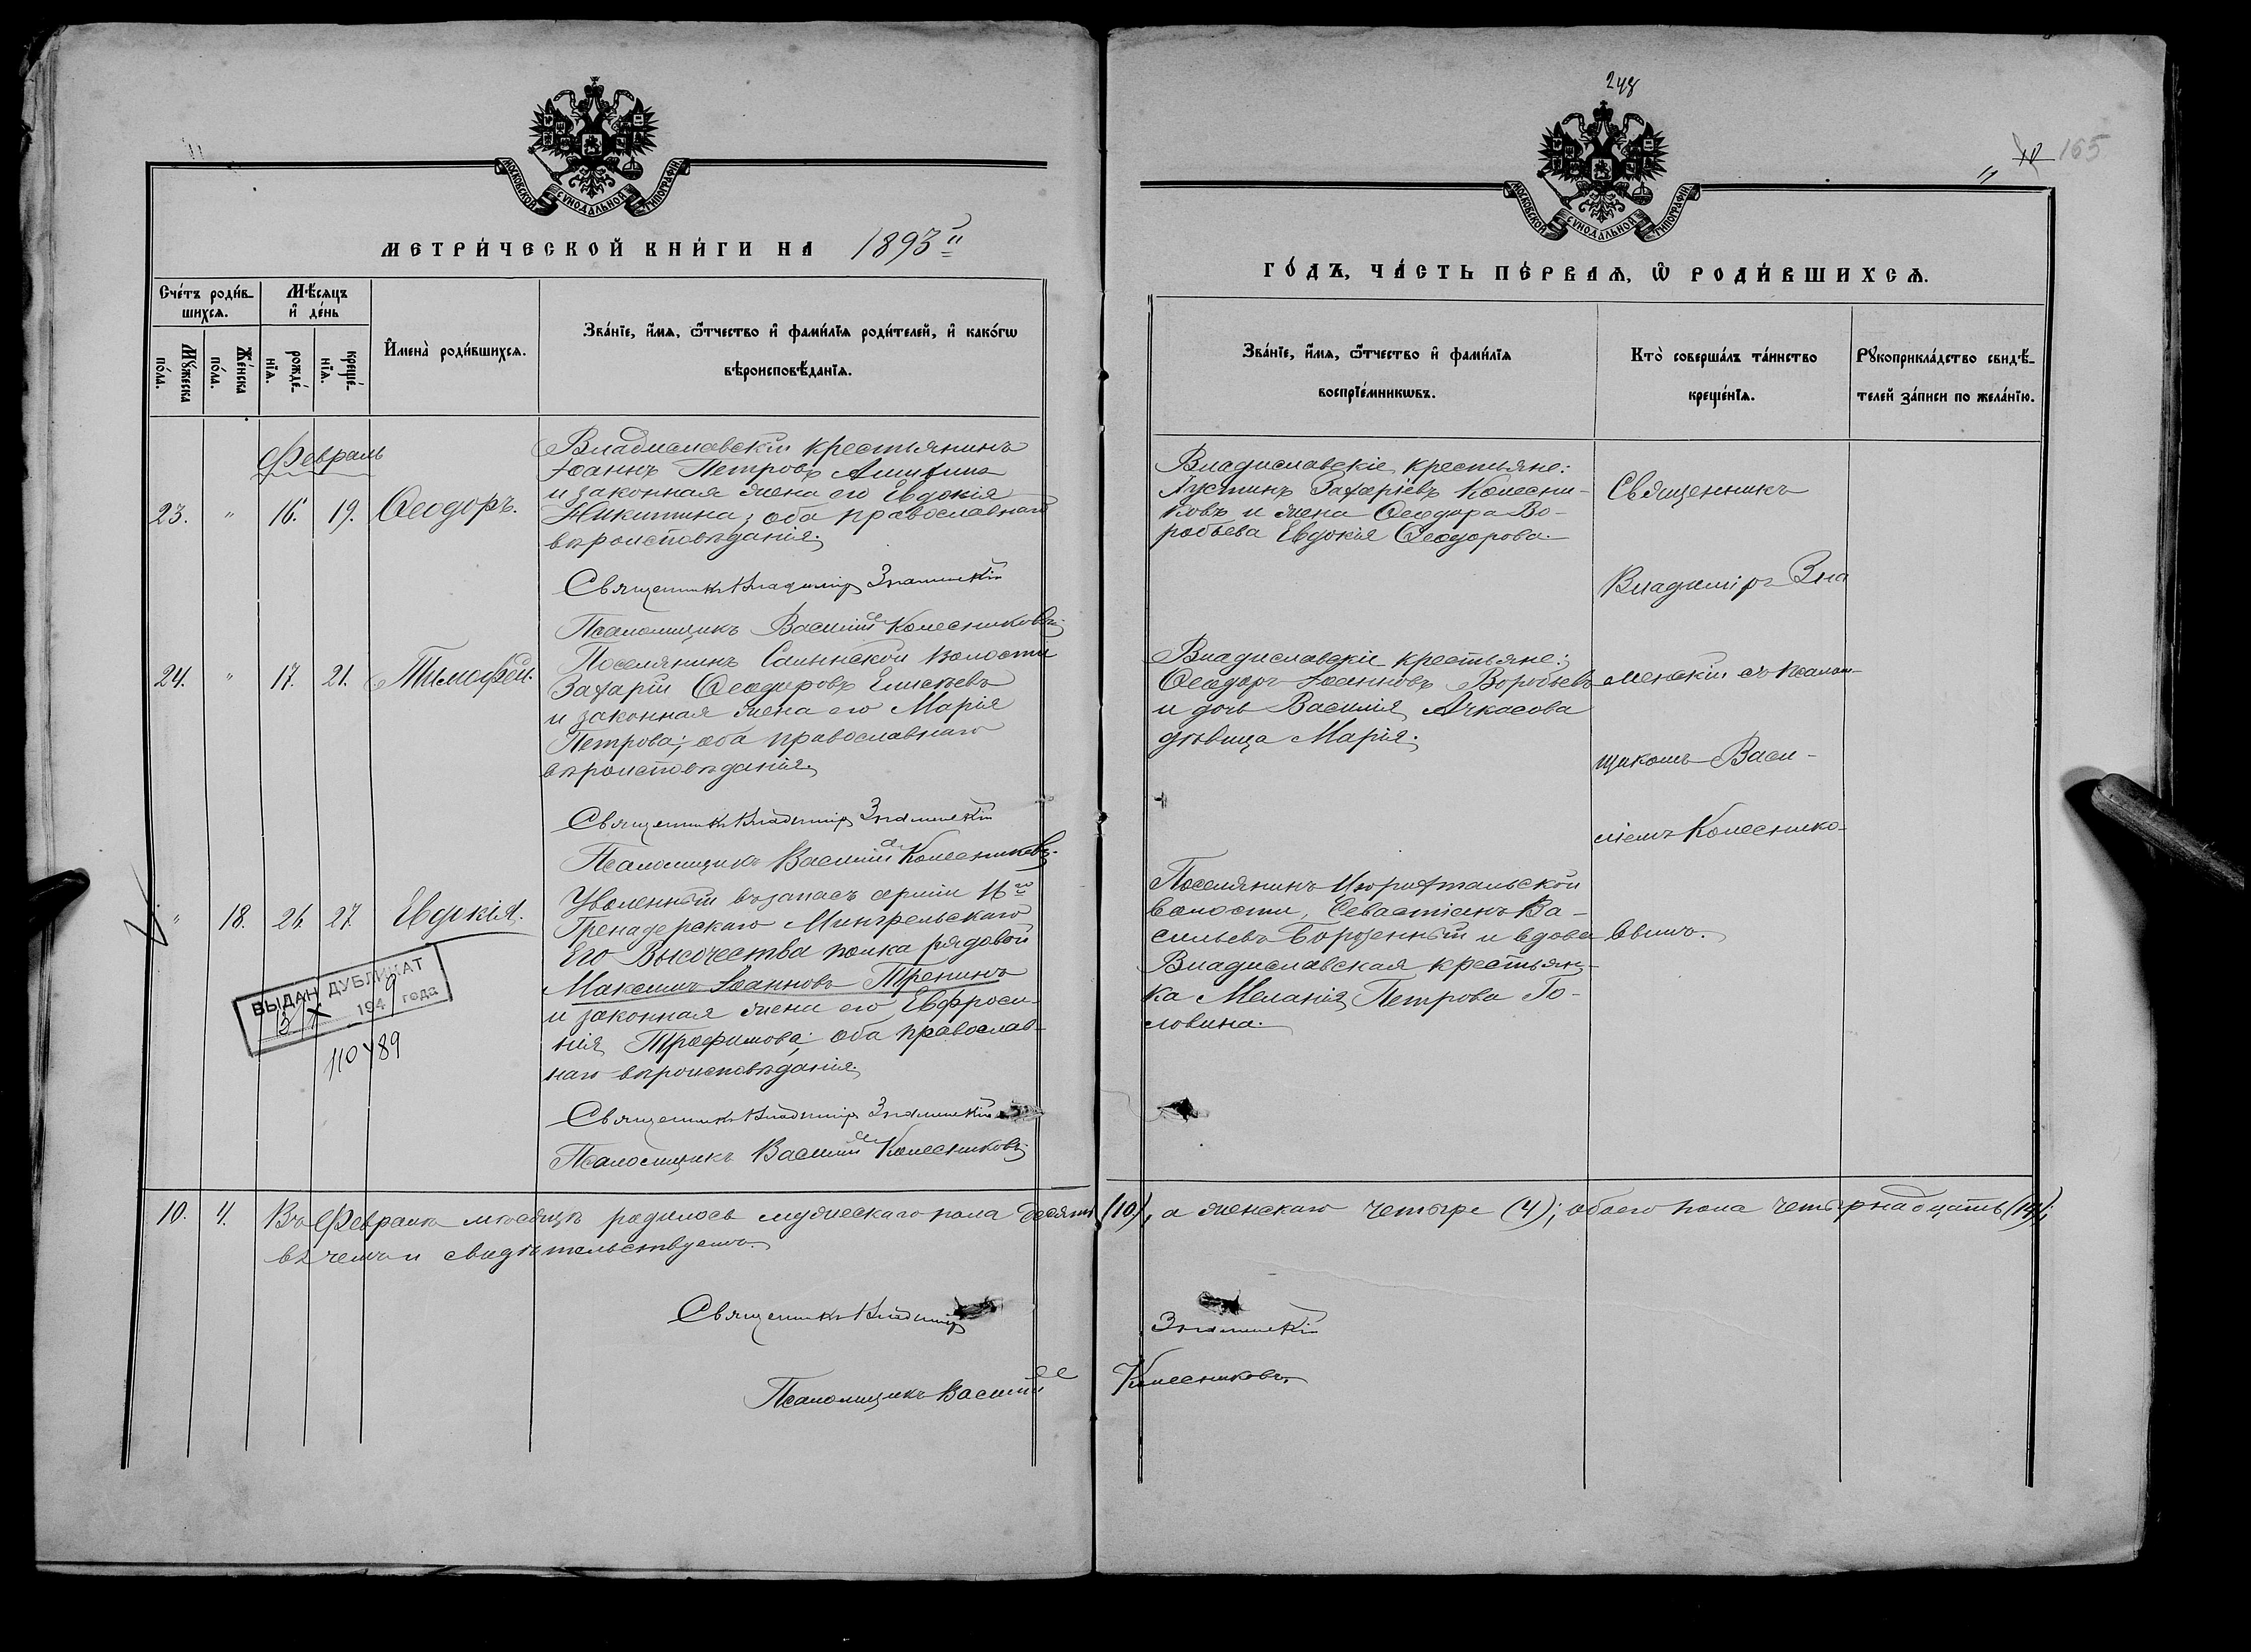 248
165
МОСКОВСКОЙ СѴНОДАЛЬНОЙ ТИПОГРАФІИ
МОСКОВСКОЙ СѴНОДАЛЬНОЙ ТИПОГРАФІИ
МЕТРИ́ЧЕСКОЙ КНИ́ГИ НА 1893й
ГО́ДЪ, ЧА́СТЬ ПЕ́РВАѦ, Ѽ РОДИ́ВШИХСѦ.
Сче́тъ роди́в-
шихсѧ.
Мѣ́сѧцъ
и҆ де́нь
Мꙋ́жеска
по́ла.
Же́нска
по́ла.
рожде́-
нїѧ.
креще́-
нїѧ.
И҆мена̀ роди́вшихсѧ.
Зва́нїе, и҆́мѧ, ѻ҆́тчество и҆ фами́лїѧ роди́телей, и҆ како́гѡ
вѣроисповѣ́данїѧ.
Зва́нїе, и҆́мѧ, ѻ҆́тчество и҆ фами́лїѧ
воспрїе́мникѡвъ.
Кто̀ соверша́лъ та́инство
креще́нїѧ.
Рꙋкоприкла́дство свидѣ́-
телей за́писи по жела́нїю.
Февраль
23. " 16. 19. Ѳеодоръ.
Владиславскій крестьянинъ
Іоаннъ Петровъ
и законная жена его Евдокія
Никитина; оба православнаго
вѣроисповѣданія.
Священникъ Владиміръ Знаменскій
Псаломщикъ Василій Колесниковъ
Владиславскіе крестьяне:
Іустинъ Захаріевъ Колесни-
ковъ и жена Ѳеодора Во-
робьева Евдокія Ѳеодорова.
Священникъ
Владиміръ Зна
24. " 17. 21. Тимофей.
Поселянинъ Салынской волости
Захарій Ѳеодоровъ Елисѣевъ
и законная жена его Марія
Петрова; оба православнаго
вѣроисповѣданія.
Священникъ Владиміръ Знаменскій
Псаломщикъ Василій Колесниковъ.
Владиславскіе крестьяне:
Ѳеодоръ Іоанновъ Воробьевъ
и дочь Василія Ачкасова
дѣвица Марія.
менскій съ псалом-
щикомъ Васи-
ліемъ Колеснико-
вымъ.
" 18. 26. 27. Евдокія.
Уволенный въ запасъ арміи 16го
Гренадерскаго Мингрельскаго
Его Высочества полка рядовой
Максимъ Іоанновъ Тренинъ
и законная жена его Евфроси-
нія Трофимова; оба православ-
наго вѣроисповѣданія.
Священникъ Владиміръ Знаменскій
Псаломщикъ Василій Колесниковъ
Поселянинъ Цюрихтальской
волости, Севастіанъ Ва-
сильевъ Борозенный и вдова
Владиславская крестьян-
ка Меланія Петрова Го-
ловина.
ВЫДАН ДУБЛИКАТ
X 1949 года
110489
10. 4. Въ Февралѣ мѣсяцѣ родилось мужескаго пола десять (10), а женскаго четыре (4); обоего пола четырнадцать (14);
въ чемъ и свидѣтельствуемъ.
Священникъ Владиміръ Знаменскій
Псаломщикъ Василій Колесниковъ